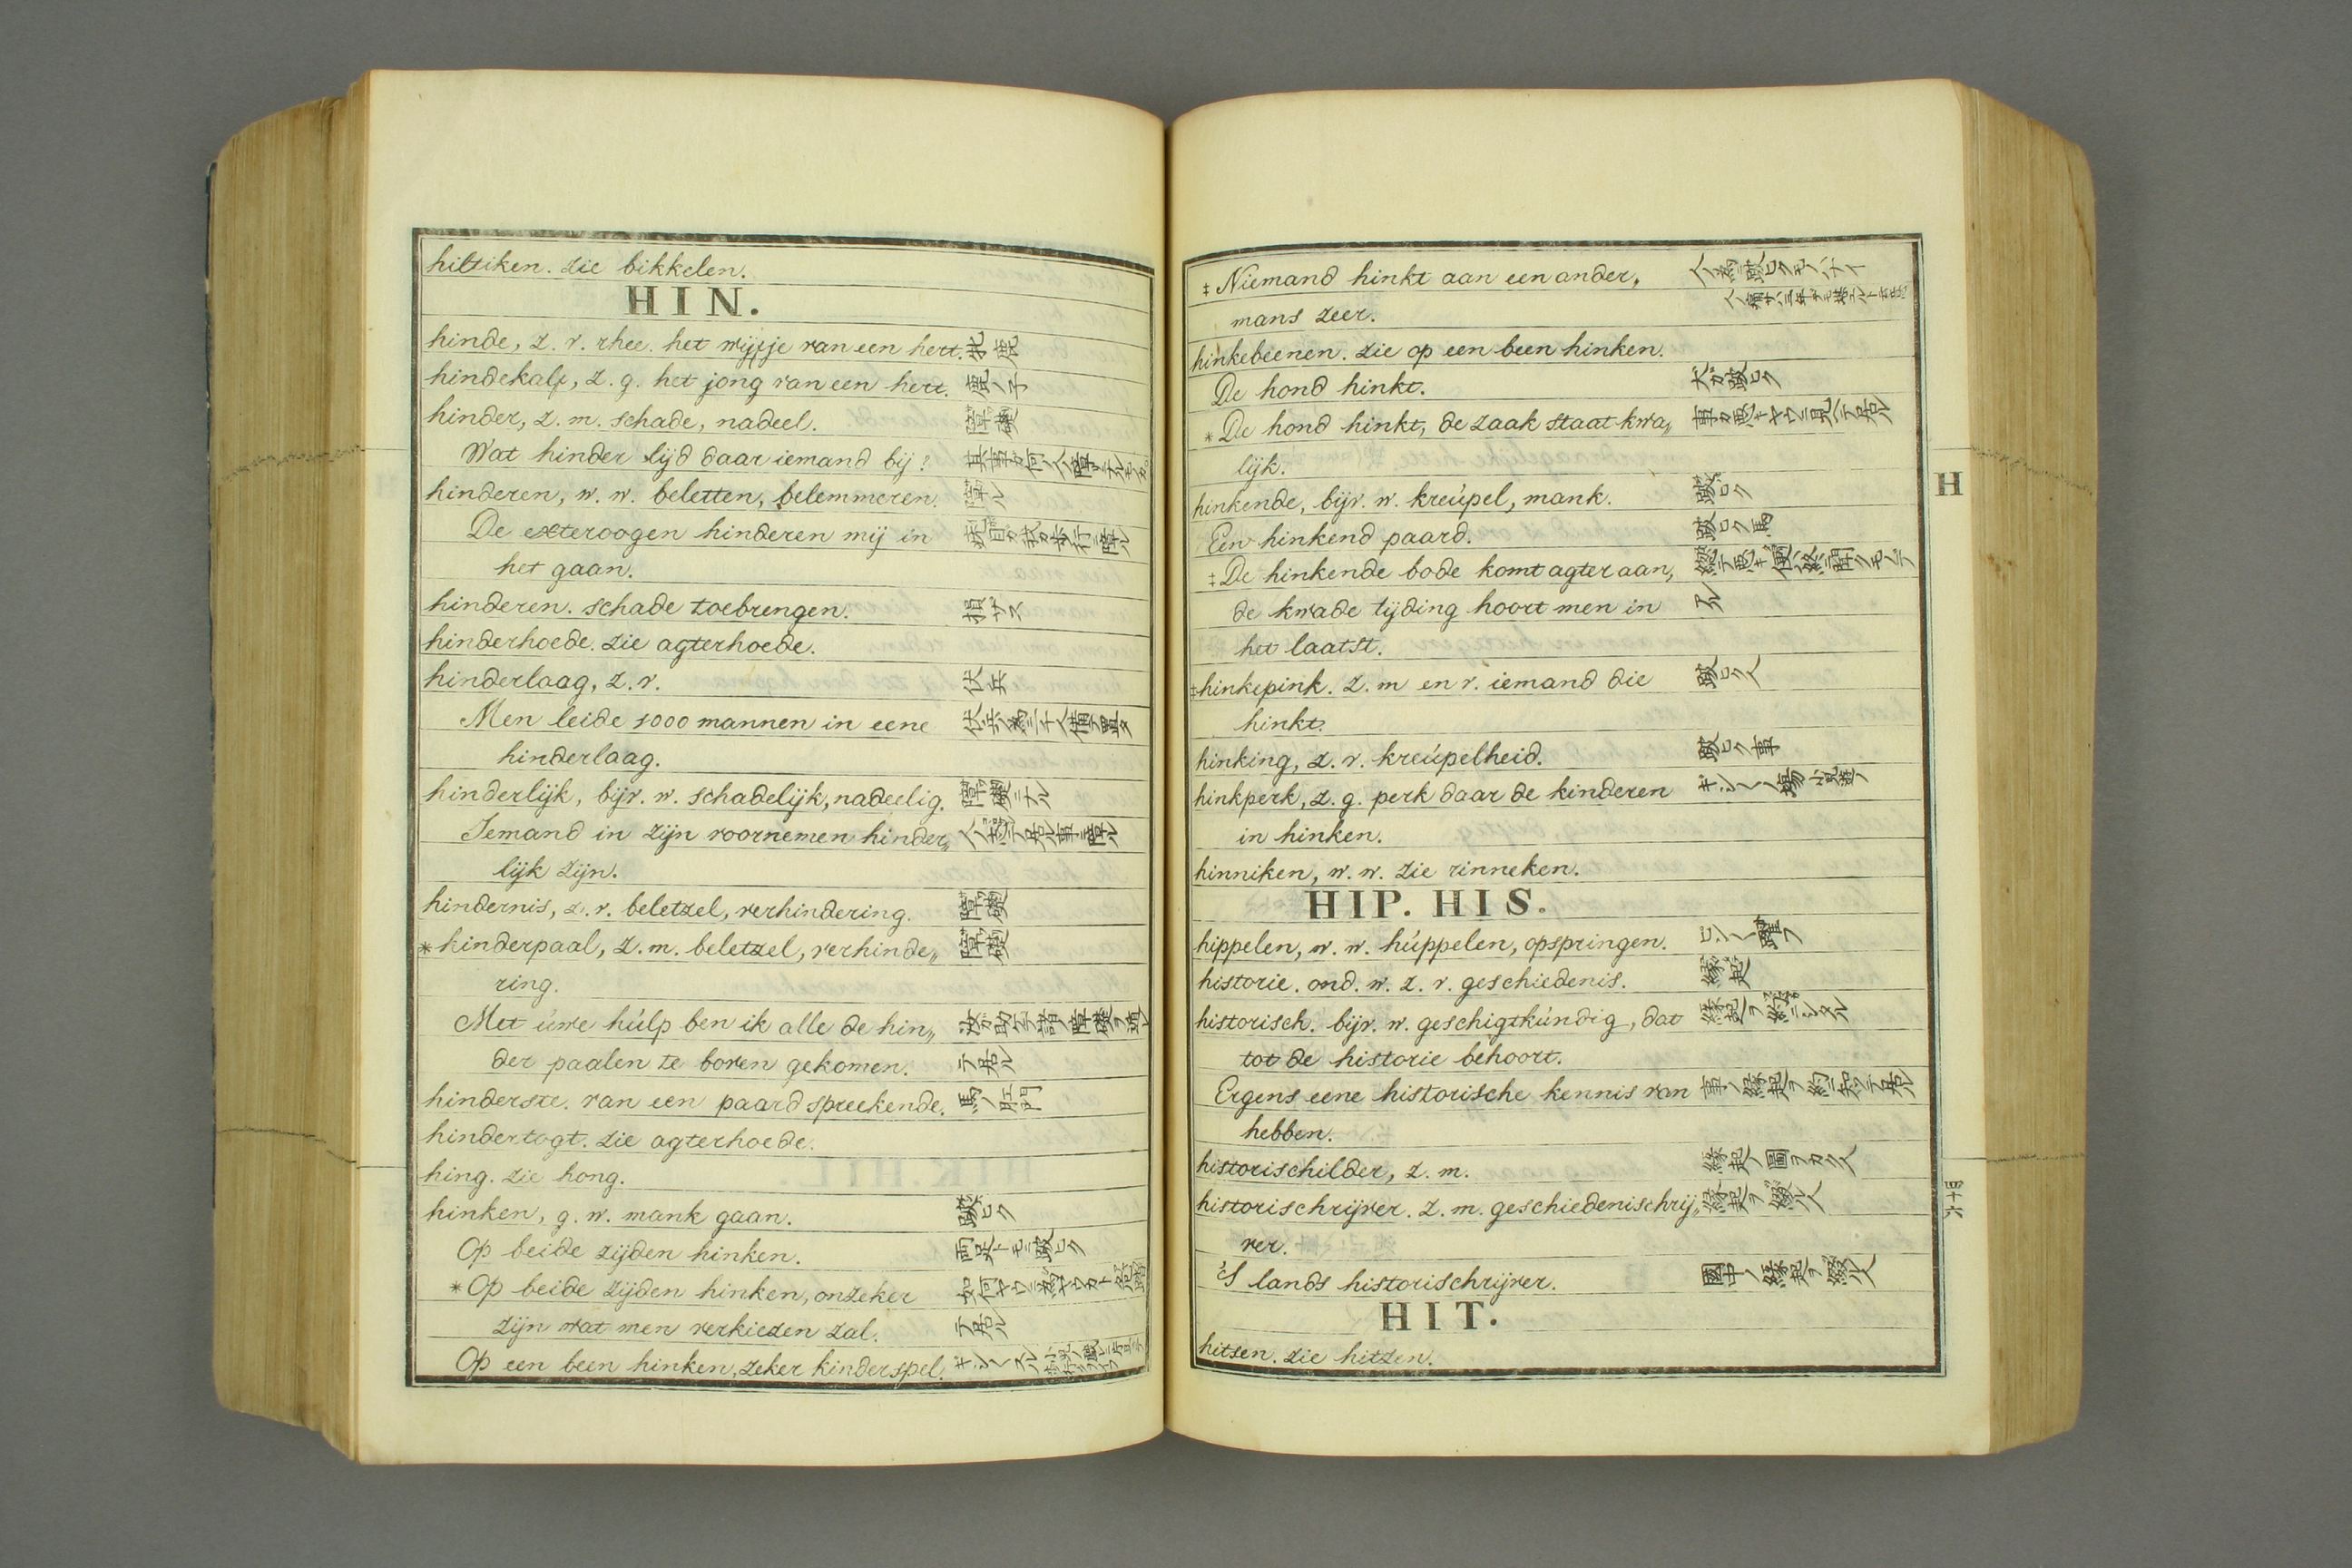 hiltiken. zie bikkelen.
HIN.
hinde, z. v. rhee. het wijfje van een hert. 牝鹿
hindekalf, z. g. het jong van een hert. 鹿ノ子
hinder, z. m. schade, nadeel. 障礙
Wat hinder lijd daar iemand bij?
hinderen, w. w. beletten, belemmeren. 障ル
De exteroogen hinderen mij in
het gaan.
hinderen. schade toebrengen. 損サス
hinderhoede. zie agterhoede.
hinderlaag, z. v. 伏兵
Men leide 1000 mannen in eene
hinderlaag.
hinderlijk, bijv. w. schadelijk, nadeelig. 障礙ニナル
Iemand in zijn voornemen hinder„
lijk zijn.
hindernis, z. v. beletzel, verhindering. 障礙
*hinderpaal, z. m. beletzel, verhinde„ 障礙
ring.
Met úwe húlp ben ik alle de hin„
der paalen te boven gekomen. テ居ル
hinderste. van een paard spreekende. 馬ノ肛門
hindertogt. zie agterhoede.
hing. zie hong.
hinken, g. w. mank gaan. 跛ヒク
Op beide zijden hinken. 両足トモニ跛ヒク
*Op beide zijden hinken, onzeker
zijn wat men verkiezen zal. テ居ル
Op een been hinken, zeker kinderspel.
‡Niemand hinkt aan een ander„
mans zeer.
hinkebeenen. zie op een been hinken.
De hond hinkt. 犬ガ跛ヒク
*De hond hinkt, de zaak staat kwa„ 事ガ悪キヤウニ見ヘテ居ル
lijk.
hinkende, bijv. w. kreúpel, mank. 跛ヒク
Een hinkend paard. 跛ヒク馬
‡De hinkende bode komt agter aan,
de kwade tijding hoort men in
het laatst.
‡hinkepink. z. m en v. iemand die 跛ヒク人
hinkt.
hinking, z. v. kreúpelheid. 跛ヒク事
hinkperk, z. g. perk daar de kinderen
in hinken.
hinniken, w. w. zie rinneken.
HIP. HIS.
hippelen, w. w. húppelen, opspringen.
historie. ond. w. z. v. geschiedenis. 縁起
historisch. bijv. w. geschigtkúndig, dat
tot de historie behoort.
Ergens eene historische kennis van
hebben.
historischilder, z. m. 縁起ノ圖ヲカク人
historischrijver. z. m. geschiedenischrij„ 縁起ヲ綴ル人
ver.
'S lands historischrijver. 國中ノ縁起ヲ綴ル人
HIT.
hitsen. zie hitzen.
H
四十六